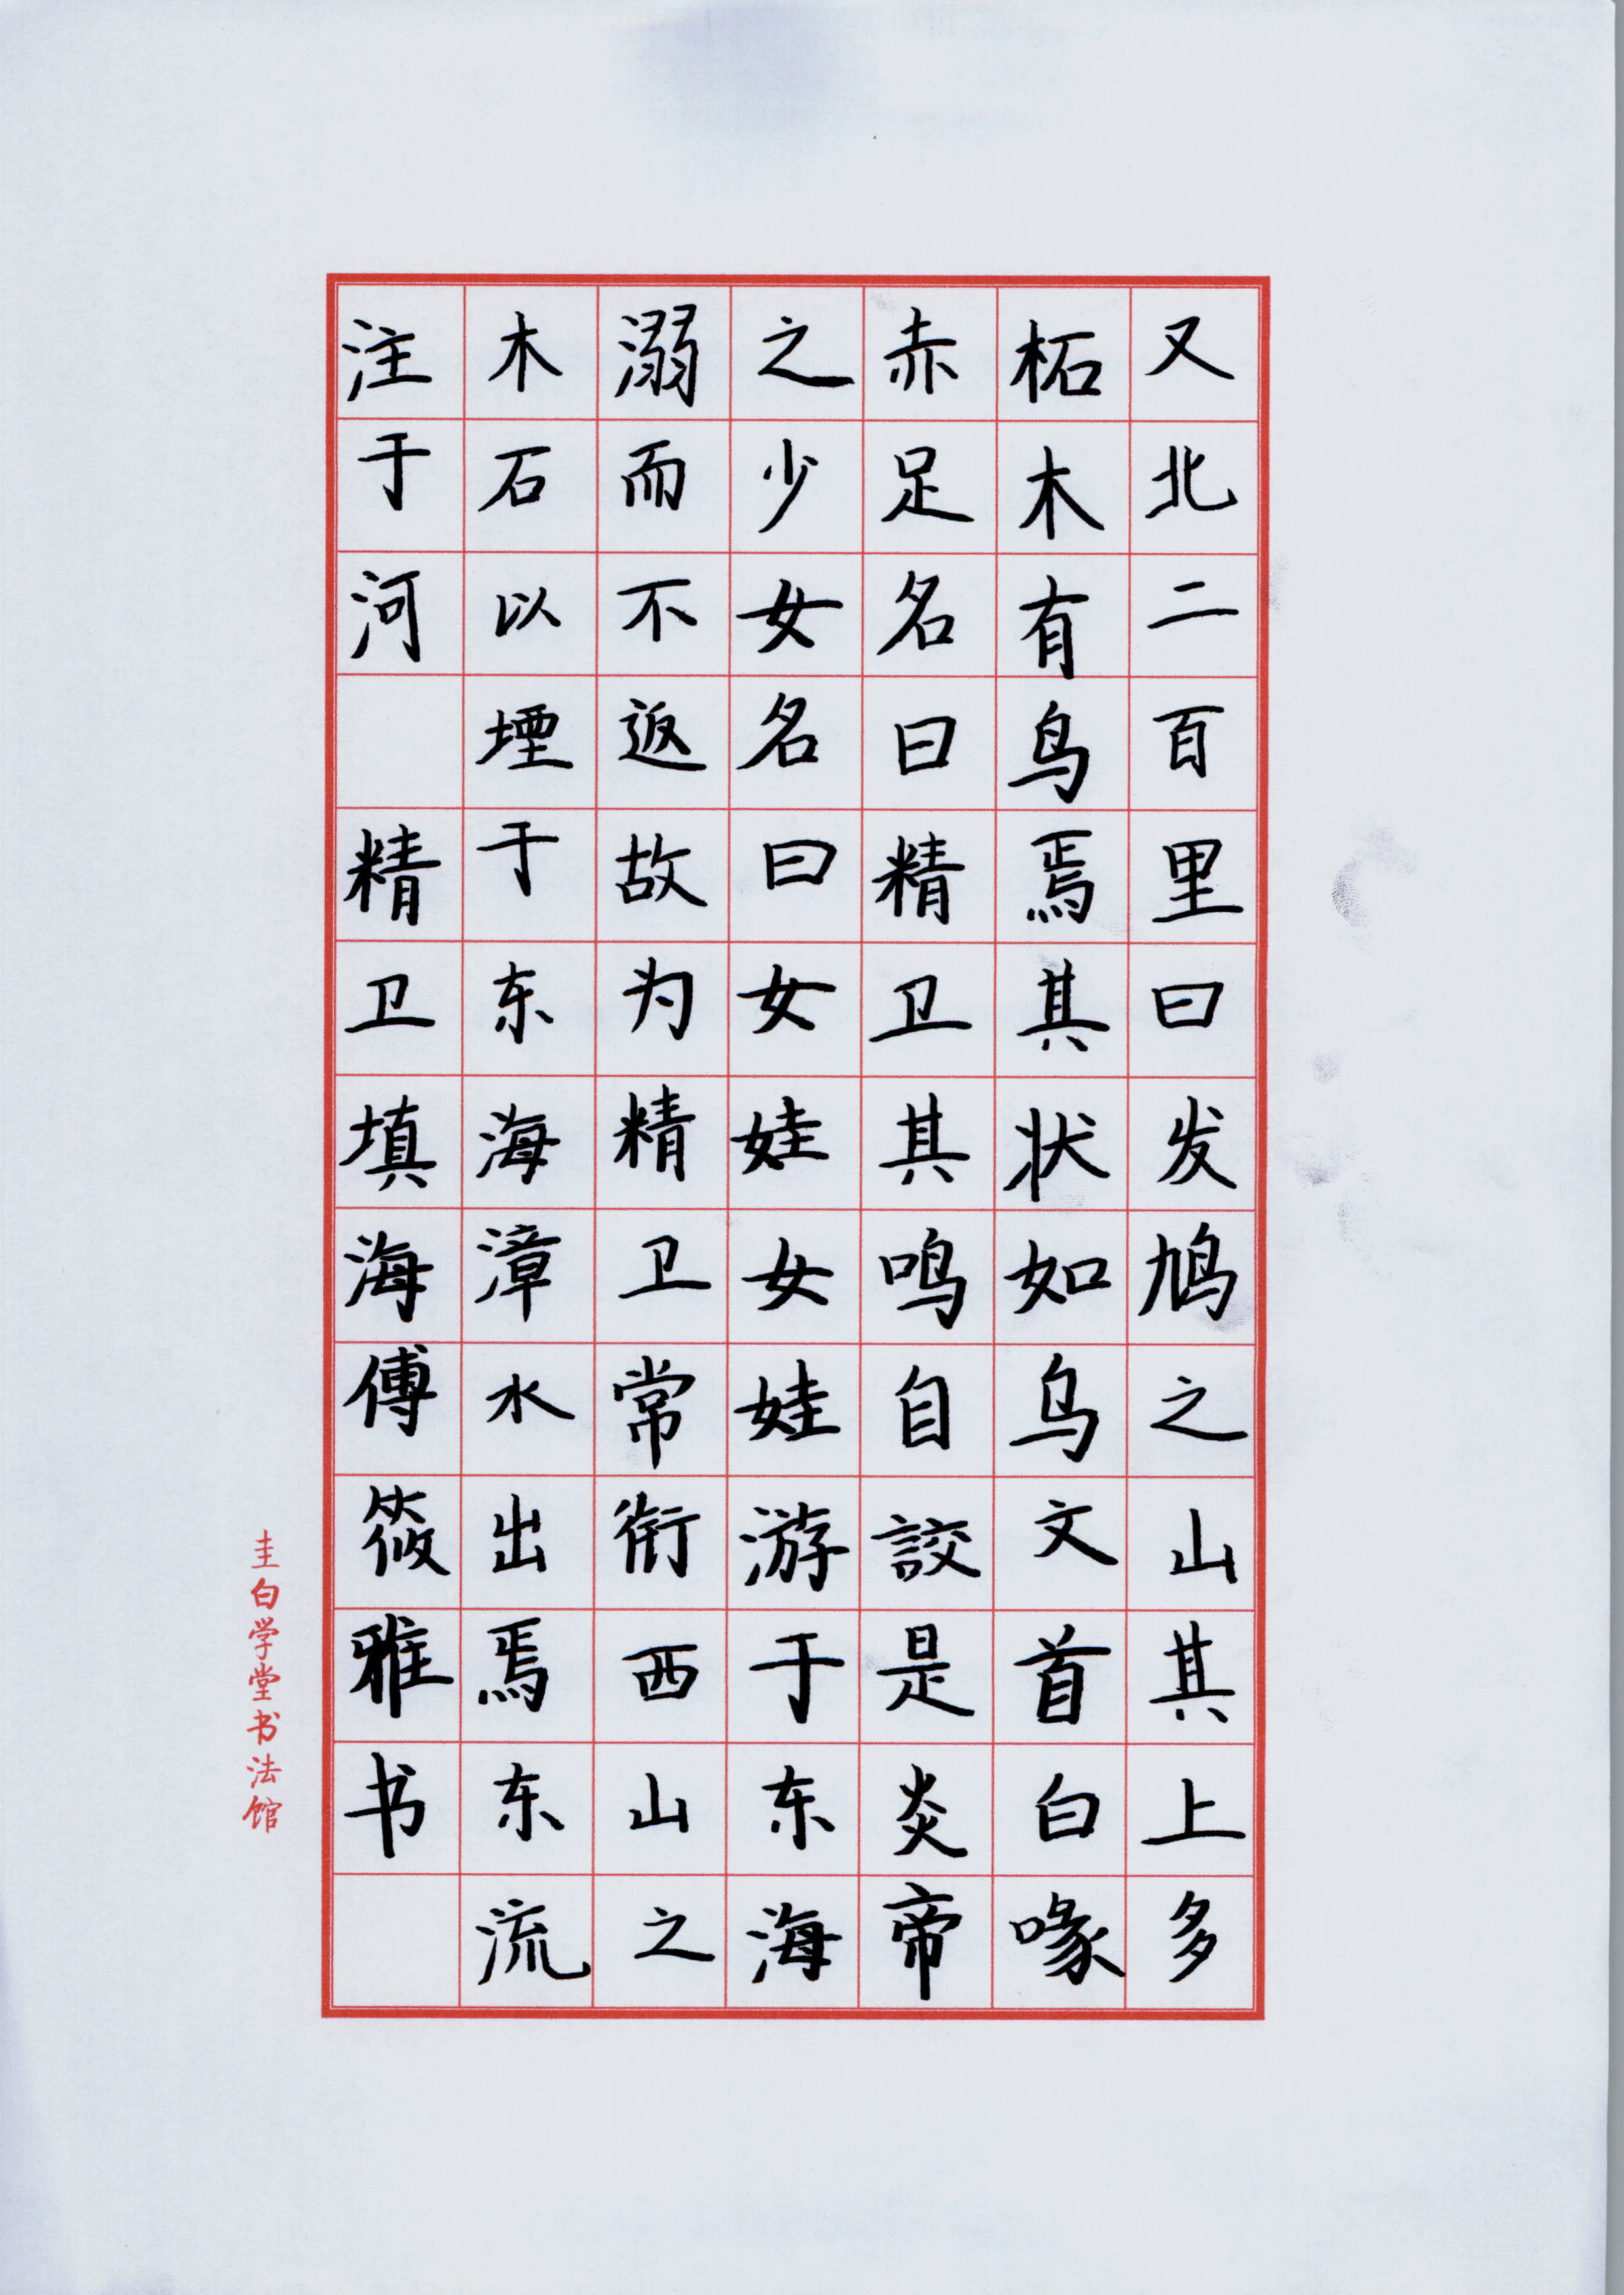 又北二百里曰发鸠之山其上多
柘木有鸟焉其状如乌文首白喙
赤足名曰精卫其鸣自詨是炎帝
之少女名曰女娃女娃游于东海
溺而不返故为精卫常衔西山之
木石以堙于东海漳水出焉东流
注于河 精卫填海傅筱雅书
圭白学堂书法馆